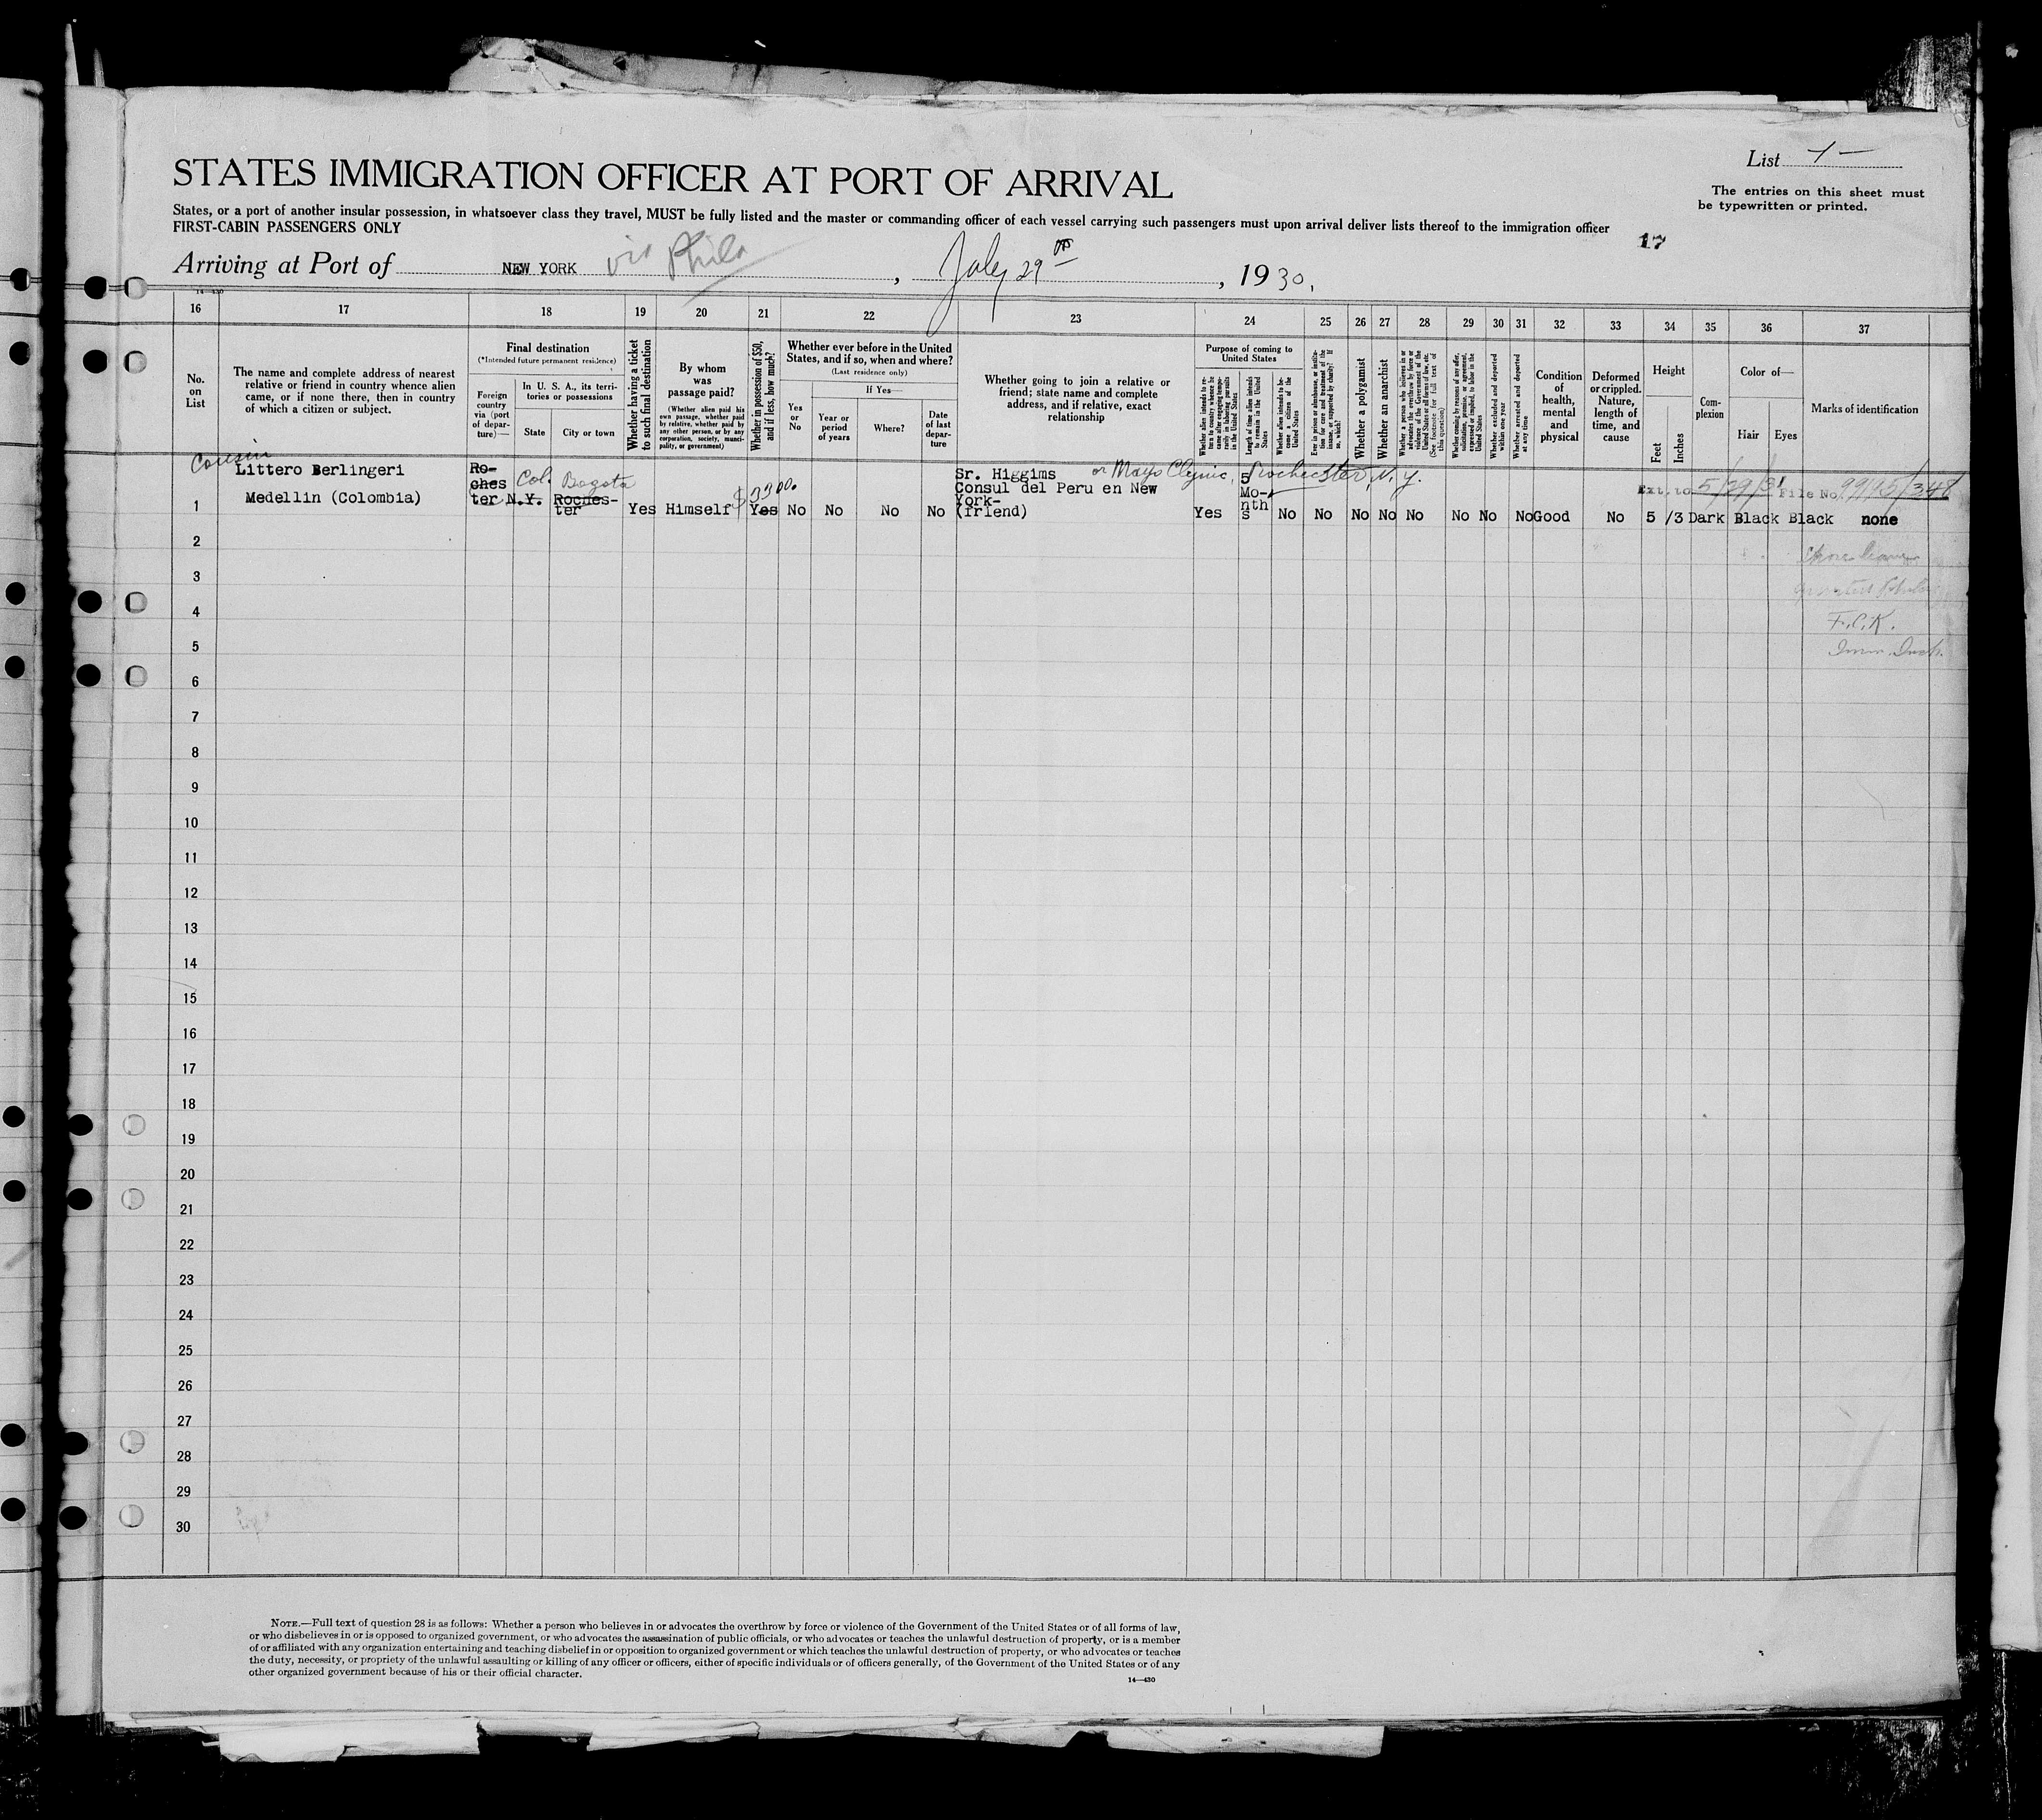 List 1
STATES IMMIGRATION OFFICER AT PORT OF ARRIVAL
The entries on this sheet must
be typewritten or printed.
States, or a port of another insular possession, in whatsoever class they travel, MUST be fully listed and the master or commanding officer of each vessel carrying such passengers must upon arrival deliver lists thereof to the immigration officer
FIRST-CABIN PASSENGERS ONLY
17
Arriving at Port of NEW YORK via Phila, July 29th, 1930.
14-430
16 17 18 19 20 21 22 23 24 25 26 27 28 29 30 31 32 33 34 35 36 37
No.
on
List
The name and complete address of nearest
relative or friend in country whence alien
came, or if none there, then in country
of which a citizen or subject.
Final destination
(*Intended future permanent residence)
Foreign
country
via (port
of depar-
ture)—
In U. S. A., its terri-
tories or possessions
State City or town
Whether having a ticket
to such final destination
By whom
was
passage paid?
(Whether alien paid his
own passage, whether paid
by relative, whether paid by
any other person, or by any
corporation, society, munici-
pality, or government)
Whether in possession of $50,
and if less, how much?
Whether ever before in the United
States, and if so, when and where?
(Last residence only)
If Yes—
Yes
or
No
Year or
period
of years
Where?
Date
of last
depar-
ture
Whether going to join a relative or
friend; state name and complete
address, and if relative, exact
relationship
Purpose of coming to
United States
Whether alien intends to re-
turn to country whence he
came after engaging tempo-
rarily in laboring pursuits
in the United States
Length of time alien intends
to remain in the United
States
Whether alien intends to be-
come a citizen of the
United States
Ever in prison or almshouse, or institu-
tion for care and treatment of the
insane, or supported by charity? If
so, which?
Whether a polygamist
Whether an anarchist
Whether a person who believes in or
advocates the overthrow by force or
violence of the Government of the
United States or all forms of law, etc.
(See footnote for full text of
this question)
Whether coming by reasons of any offer,
solicitation, promise, or agreement,
expressed or implied, to labor in the
United States
Whether excluded and deported
within one year
Whether arrested and deported
at any time
Condition
of
health,
mental
and
physical
Deformed
or crippled.
Nature,
length of
time, and
cause
Height
Feet Inches
Com-
plexion
Color of—
Hair Eyes
Marks of identification
cousin
Littero Berlingeri
Medellin (Colombia)
Ro-
ches
ter
Col. Bogota
N.Y. Roches-
ter
Yes Himself
$
Yes No No No No
Sr. Higgims or Mayo Clynic, Rochester, N. Y.
Consul del Peru en New
York-
(friend)
Yes
5
Mo-
nth
s
No No No No No No No No Good No 5 /3 Dark Black Black none
Ext. to 5/29/31 File No 99115/348
F.C.K.
Imm. Insp.
1
2
3
4
5
6
7
8
9
10
11
12
13
14
15
16
17
18
19
20
21
22
23
24
25
26
27
28
29
30
NOTE.—Full text of question 28 is as follows: Whether a person who believes in or advocates the overthrow by force or violence of the Government of the United States or of all forms of law,
or who disbelieves in or is opposed to organized government, or who advocates the assassination of public officials, or who advocates or teaches the unlawful destruction of property, or is a member
of or affiliated with any organization entertaining and teaching disbelief in or opposition to organized government or which teaches the unlawful destruction of property, or who advocates or teaches
the duty, necessity, or propriety of the unlawful assaulting or killing of any officer or officers, either of specific individuals or of officers generally, of the Government of the United States or of any
other organized government because of his or their official character.
14—430